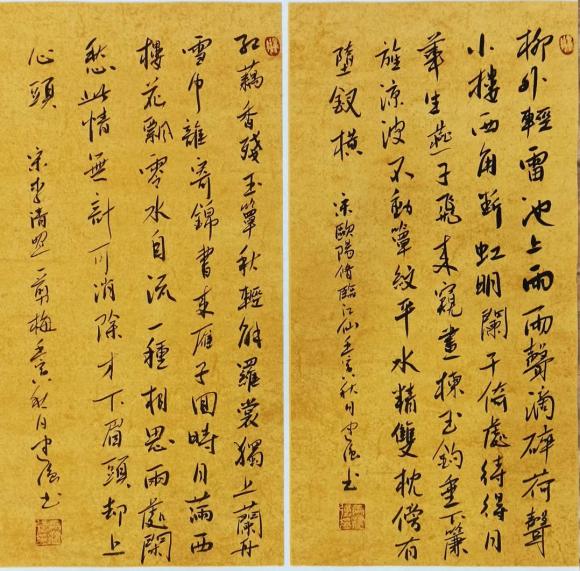 柳外輕雷池上雨雨聲滴碎荷聲
小樓西角斷虹明闌干倚處待得月
華生燕子飛来窺畫棟玉鈎垂下簾
旌涼波不動簟紋平水精雙枕傍有
墮釵橫
宋歐陽修臨江仙壬寅秋日书
红藕香殘玉簟秋輕解羅裳獨上蘭舟
雲中誰寄錦書来雁字回時月滿西
樓花飄零水自流一種相思兩處閑
愁此情無計可消除才下眉頭却上
心頭
宋李清照一剪梅壬寅秋日书